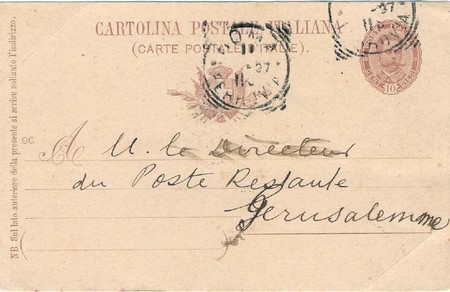 CARTOLINA POSTALE ITALIANA
(CARTE POSTALE D'ITALIE)
97
10
NB. Sul lato anteriore della presente si scrive soltanto l'indirizzo.
A M. le Directeur
du Poste Restante
Jerusalemme